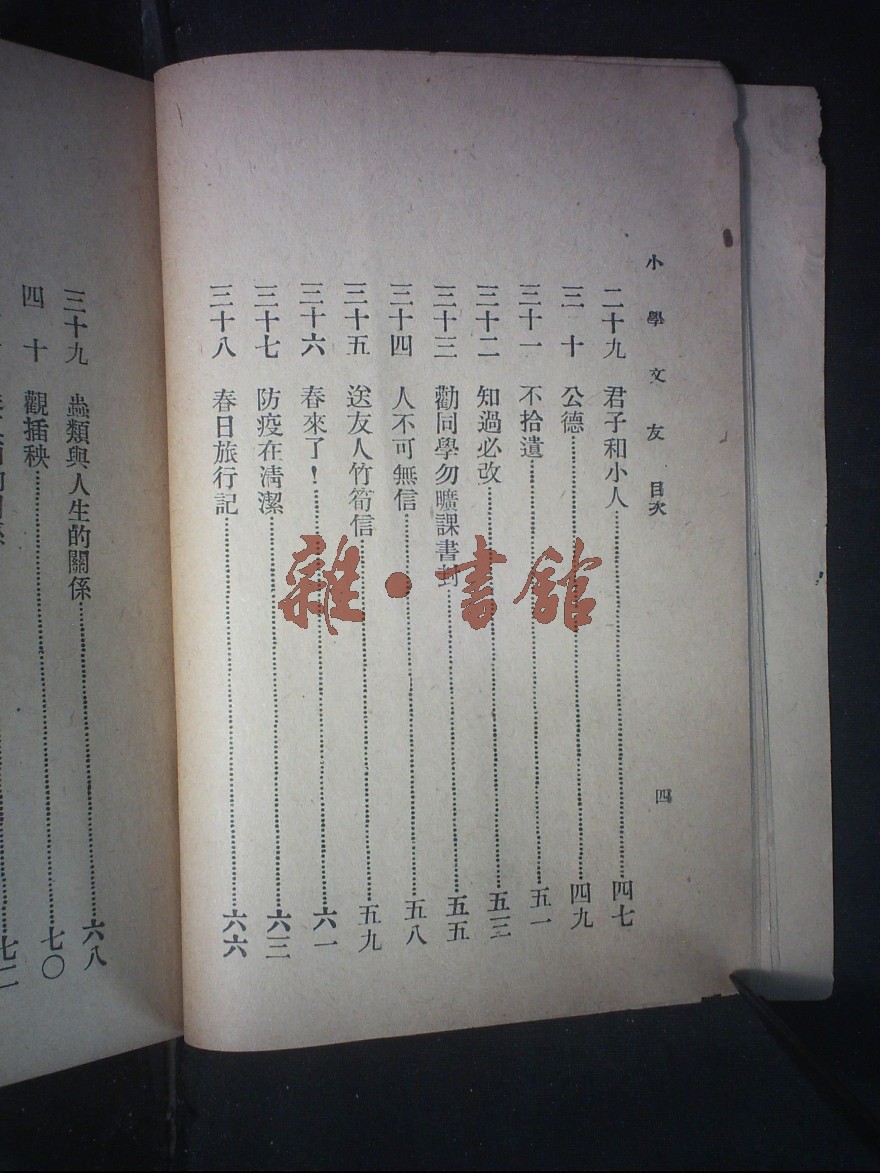 小學文友 目次 四
二十九 君子和小人 四七
三十 公德 四九
三十一 不拾遺 五一
三十二 知過必改 五三
三十三 勸同學勿曠課書封 五五
三十四 人不可無信 五八
三十五 送友人竹筍信 五九
三十六 春來了！ 六一
三十七 防疫在清潔 六三
三十八 春日旅行記 六六
三十九 蟲類與人生的關係 六八
四十 觀插秧 七〇
七二
雜·書館